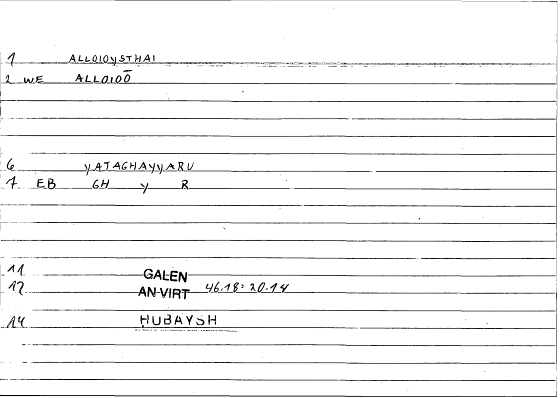 1 ALLOIOySTHAI
2 WE ALLOIOŌ
6 yATAGHAyyARU
7 EB GH y R
11 GALEN
12 AN VIRT 46.18 = 20.14
14 ḤUBAYSH